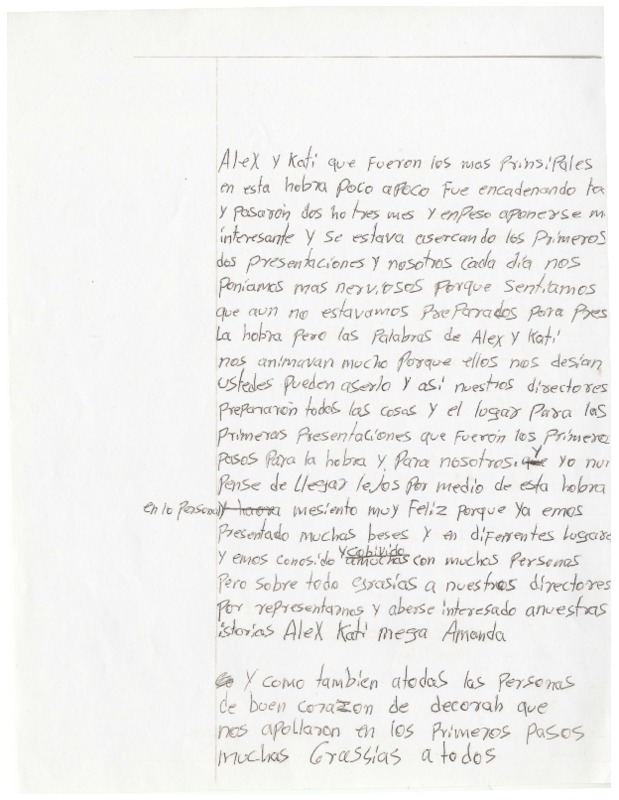 Alex y Kati que fueron los mas prinsipales
en esta hobra poco apoco fue encadenando ta
y pasaron dos ho tres mes y enpeso aponerse m
interesante y se estava asercando los primeros
dos presentaciones y nosotros cada dia nos
poniamos mas nerviosos porque sentiamos
que aun no estavamos preparrados para pres
La hobra pero las palabras de Alex y Kati
nos animavan mucho porque ellos nos desian
ustedes pueden aserlo y asi nuestros directores
prepararon todos las cosas y el lugar para las
primeras presentaciones que fueron los primero
pasos para la hobra y para nosotros. que y yo nun
pense de llegar lejos por medio de esta hobra
en lo personal y haora mesiento muy feliz porque ya emos
presentado muchas beses y en diferentes lugare
y emos conosido amuchas y cobivido con muchas personas
pero sobre todo grasias a nuestros directores
por representarnos y aberse interesado anuestras
istorias Alex Kati mega Amanda
Y como tambien atodas las personas
de buen corazon de decorah que
nos apollaron en los primeros pasos
muchas Grassias a todos